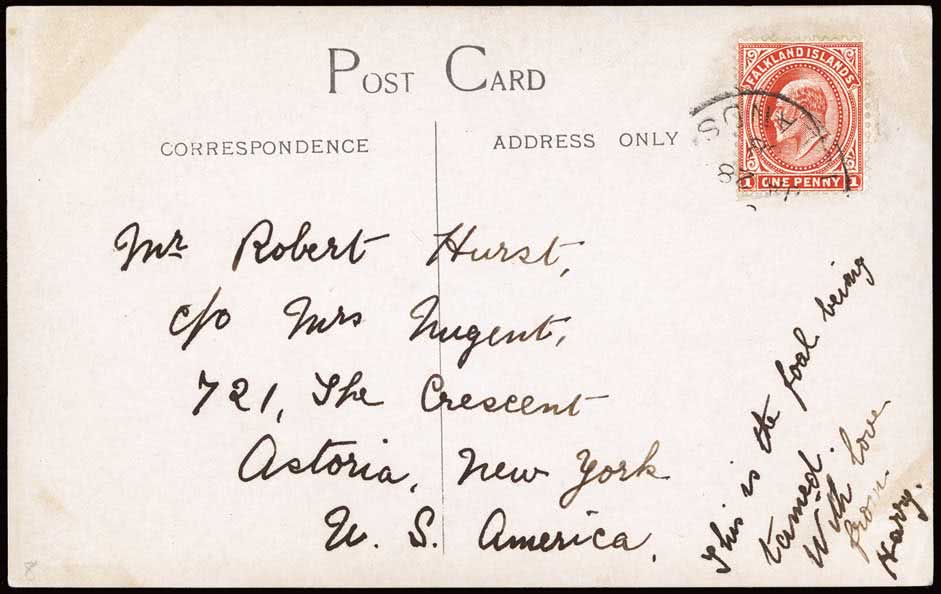 POST CARD
CORRESPONDENCE
ADDRESS ONLY
FALKLAND ISLANDS
1 ONE PENNY 1
Mr Robert Hurst,
c/o Mrs Nugent,
721, The Crescent
Astoria, New York
U. S. America.
This is the foal being
tamed.
With love
from
Harry.
8